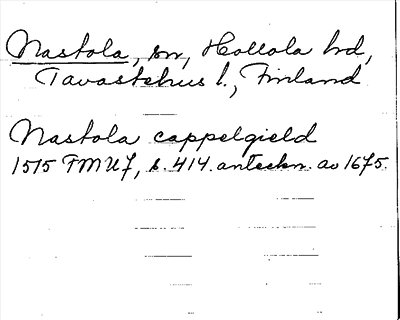 Nastola, sn, Hollola hd,
Tavastehus l., Finland
Nastola cappelgield
1515 FMU7, s. 414. anteckn. av 1675.